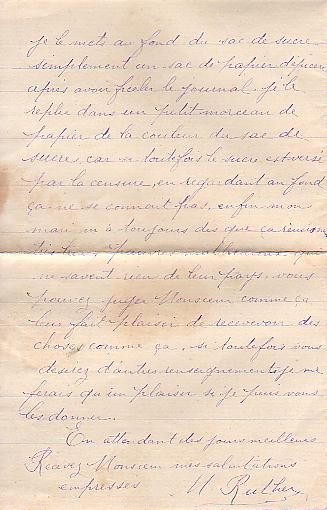 je le mets au fond du sac de sucre
simplement un sac de papier d'épicerie
après avoir ficeler le journal, je le
replie dans un petit morceau de
papier de la couleur du sac de
sucre, car si toutefois le sucre est versé
par la censure, en regardant au fond
ça ne se connait pas, enfin mon
mari m'a toujours dis que ça réussis
très bien pauvres malheureux qui
ne savent rien de leur pays, vous
pouvez juger Monsieur comme ça
leur fait plaisir de recevoir des
choses comme ça, si toutefois vous
désirez d'autres renseignements je me
ferais qu'un plaisir si je puis vous
les donner.
En attendant des jours meilleurs
Recevez Monsieur mes salutations
empressés
M. Ruther